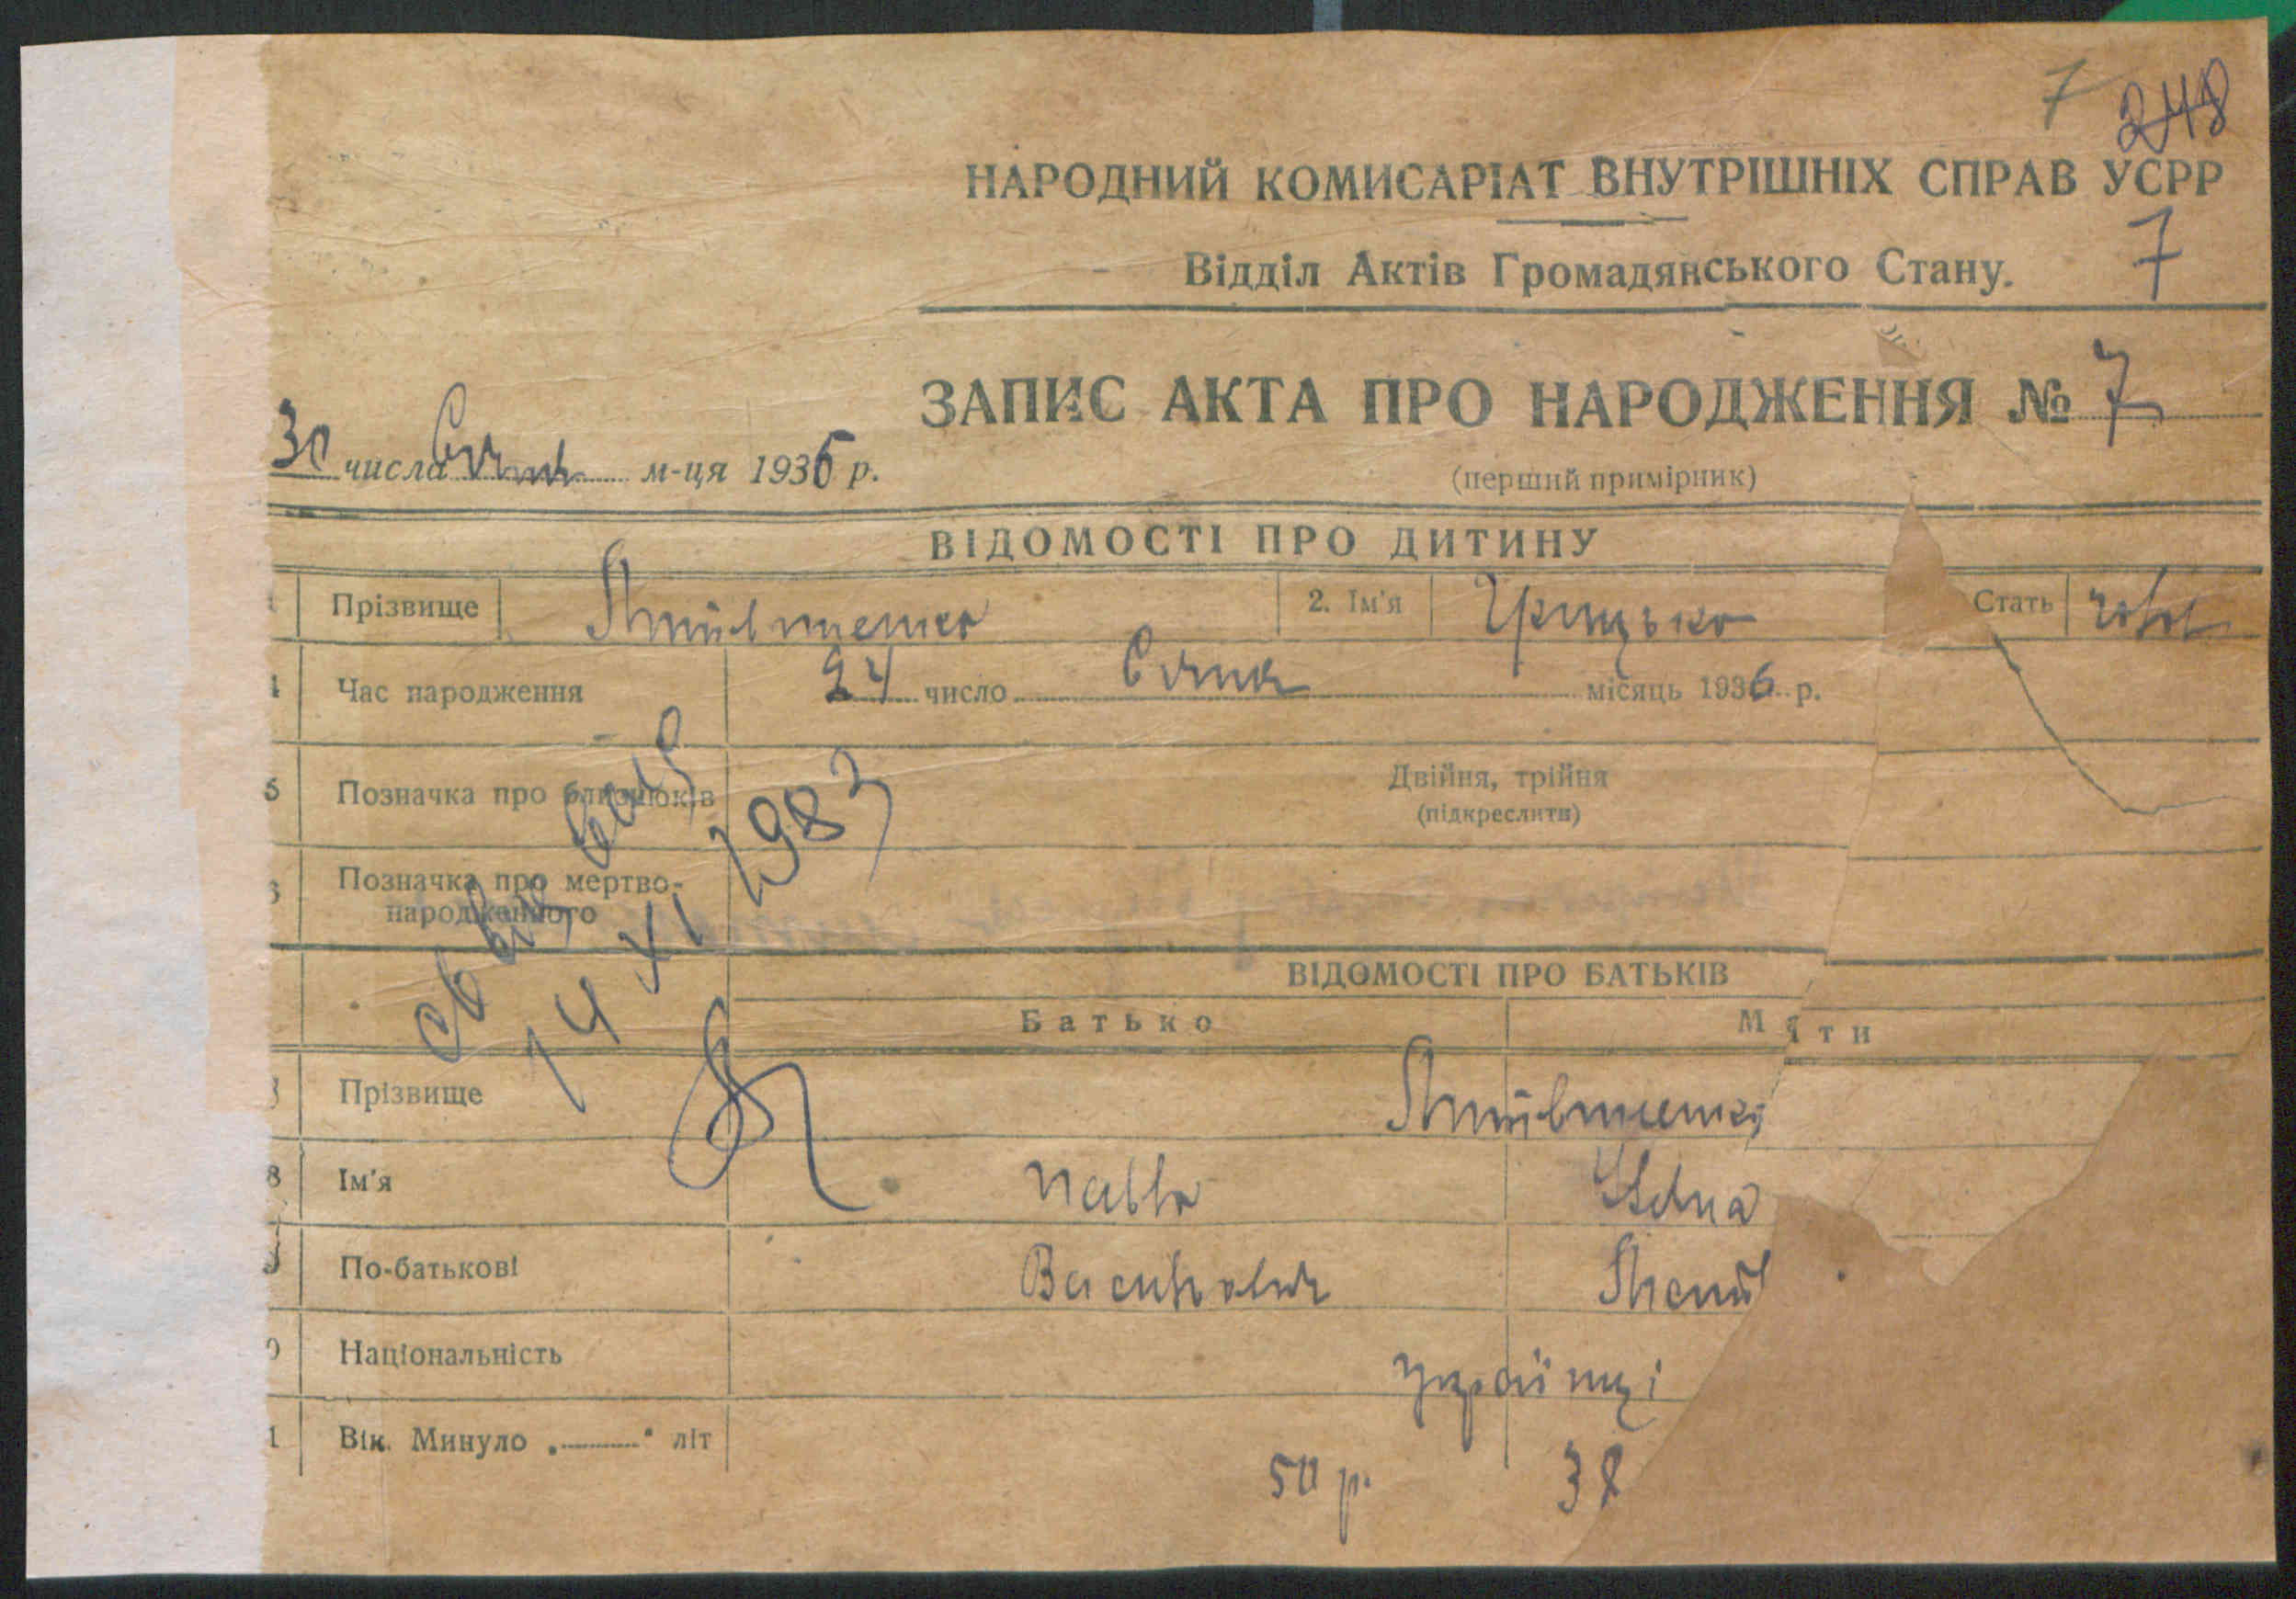 7 248
НАРОДНИЙ КОМИСАРІАТ ВНУТРІШНІХ СПРАВ УСРР
Відділ Актів Громадянського Стану. 7
ЗАПИС АКТА ПРО НАРОДЖЕННЯ № 7
30 числа Січня м-ця 1936 р.
(перший примірник)
ВІДОМОСТІ ПРО ДИТИНУ
Прізвище 2. Ім'я Грицько Стать чол
Час народження 24 число Січня місяць 1936 р.
5 Позначка про близнюків Двійня, трійня
(підкреслити)
Позначка про мертво-
народженного
14 XI 1983
ВІДОМОСТІ ПРО БАТЬКІВ
Батько Мати
Прізвище
8 Ім'я Павло
По-батькові Василович
Національність українці
1 Вік. Минуло „ " літ 50 р. 38